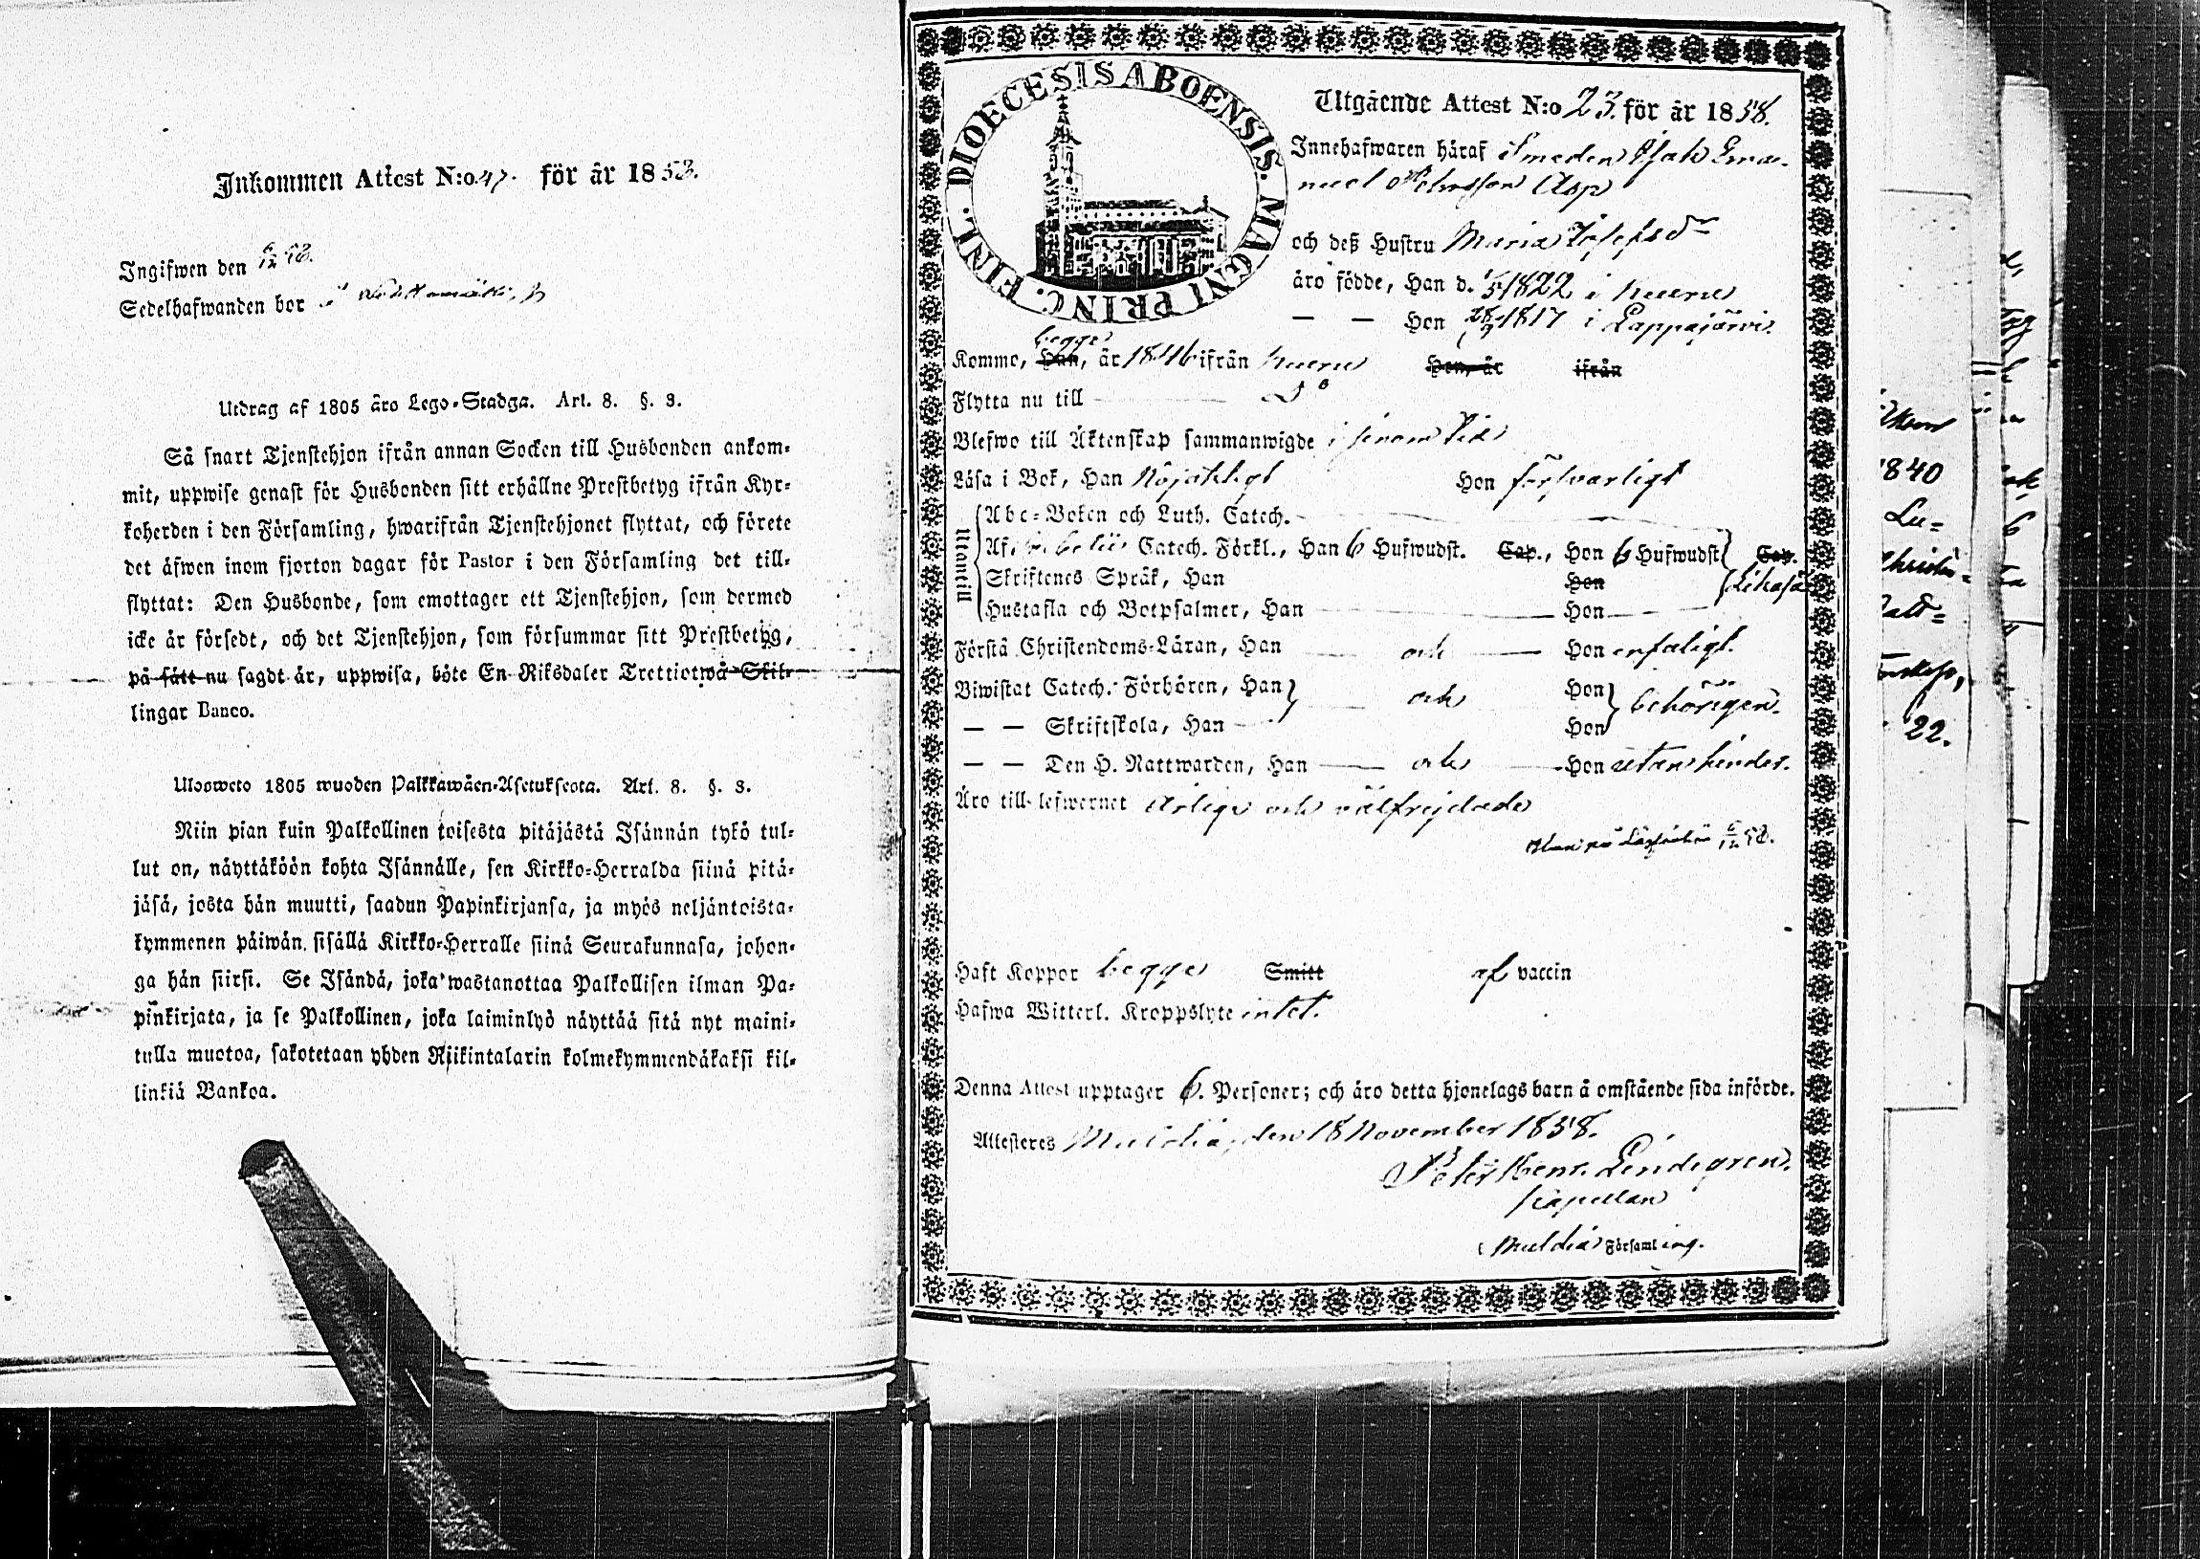 Inkommen Attest N:o 47. för år 1858.
Ingifwen den 6/12 58.
Sedelhafwanden bor i
Utdrag af 1805 åro Lego-Stadga. Art. 8. §. 3.
Så snart Tjenstehjon ifrån annan Socken till Husbonden ankom-
mit, uppwise genast för Husbonden sitt erhållne Prestbetyg ifrån Kyr-
koherden i den Församling, hwarifrån Tjenstehjonet flyttat, och förete
det äfwen inom fjorton dagar för Pastor i den Församling det till-
flyttat: Den Husbonde, som emottager ett Tjenstehjon, som dermed
icke är försedt, och det Tjenstehjon, som försummar sitt Prestbetyg,
på sätt nu sagdt är, uppwisa, böte En Riksdaler Trettiotwå Skil-
lingar Banco.
Ulosweto 1805 wuoden Palkkawäen-Asetuksesta. Art. 8. §. 3.
Niin pian kuin Palkollinen toisesta pitäjästä Isännän tykö tul-
lut on, näyttäköön kohta Isännälle, sen Kirkko-Herralda siinä pitä-
jäsä, josta hän muutti, saadun Papinkirjansa, ja myös neljäntoista-
kymmenen päiwän sisällä Kirkko-Herralle siinä Seurakunnasa, johon-
ga hän siirsi. Se Isändä, joka wastanottaa Palkollisen ilman Pa-
pinkirjata, ja se Palkollinen, joka laiminlyö näyttää sitä nyt maini-
tulla muotoa, sakotetaan yhden Riikintalarin kolmekymmendäkaksi kil-
linkiä Bankoa.
DIOECESIS ABOENSIS. MAGNI PRINC. FINL.
Utgående Attest N:o 23. för år 1858.
Innehafwaren häraf Smeden Isak Ema-
nuel Asp
och deß Hustru Maria Josefsdr
äro födde, Han d. 1/5 1822 i Keuru
— — Hon 1817 i Lappajärvi.
begge
Komme, Han, år 1846 ifrån Keuru Hon, år ifrån
Flytta nu till
Blefwo till Äktenskap sammanwigde i sinom tid
Läsa i Bok, Han Nöjaktigt Hon försvarligt
Utantill
Abc-Boken och Luth. Catech.
Af Catech. Förkl., Han 6 Hufwudst. Cap., Hon 6 Hufwudst Cap.
Skriftenes Språk, Han Hon likaså
Hustafla och Botpsalmer, Han — Hon —
Förstå Christendoms-Läran, Han — och — Hon enfaligt.
Biwistat Catech. Förhören, Han — och — Hon behörigen.
— — Skriftskola, Han — Hon
— — Den H. Nattwarden, Han — och — Hon utan hinder.
Äro till lefwernet ärlige och välfrejdade
6/12 58.
Haft Koppor begge Smitt af vaccin
Hafwa Witterl. Kroppslyte intet.
Denna Attest upptager 6. Personer; och äro detta hjonelags barn å omstående sida införde.
Attesteras Muldia, den 18 November 1858.
Peter Henr. Lindegren.
Kapellan
i Muldia Församling.
1840
Lu=
22.